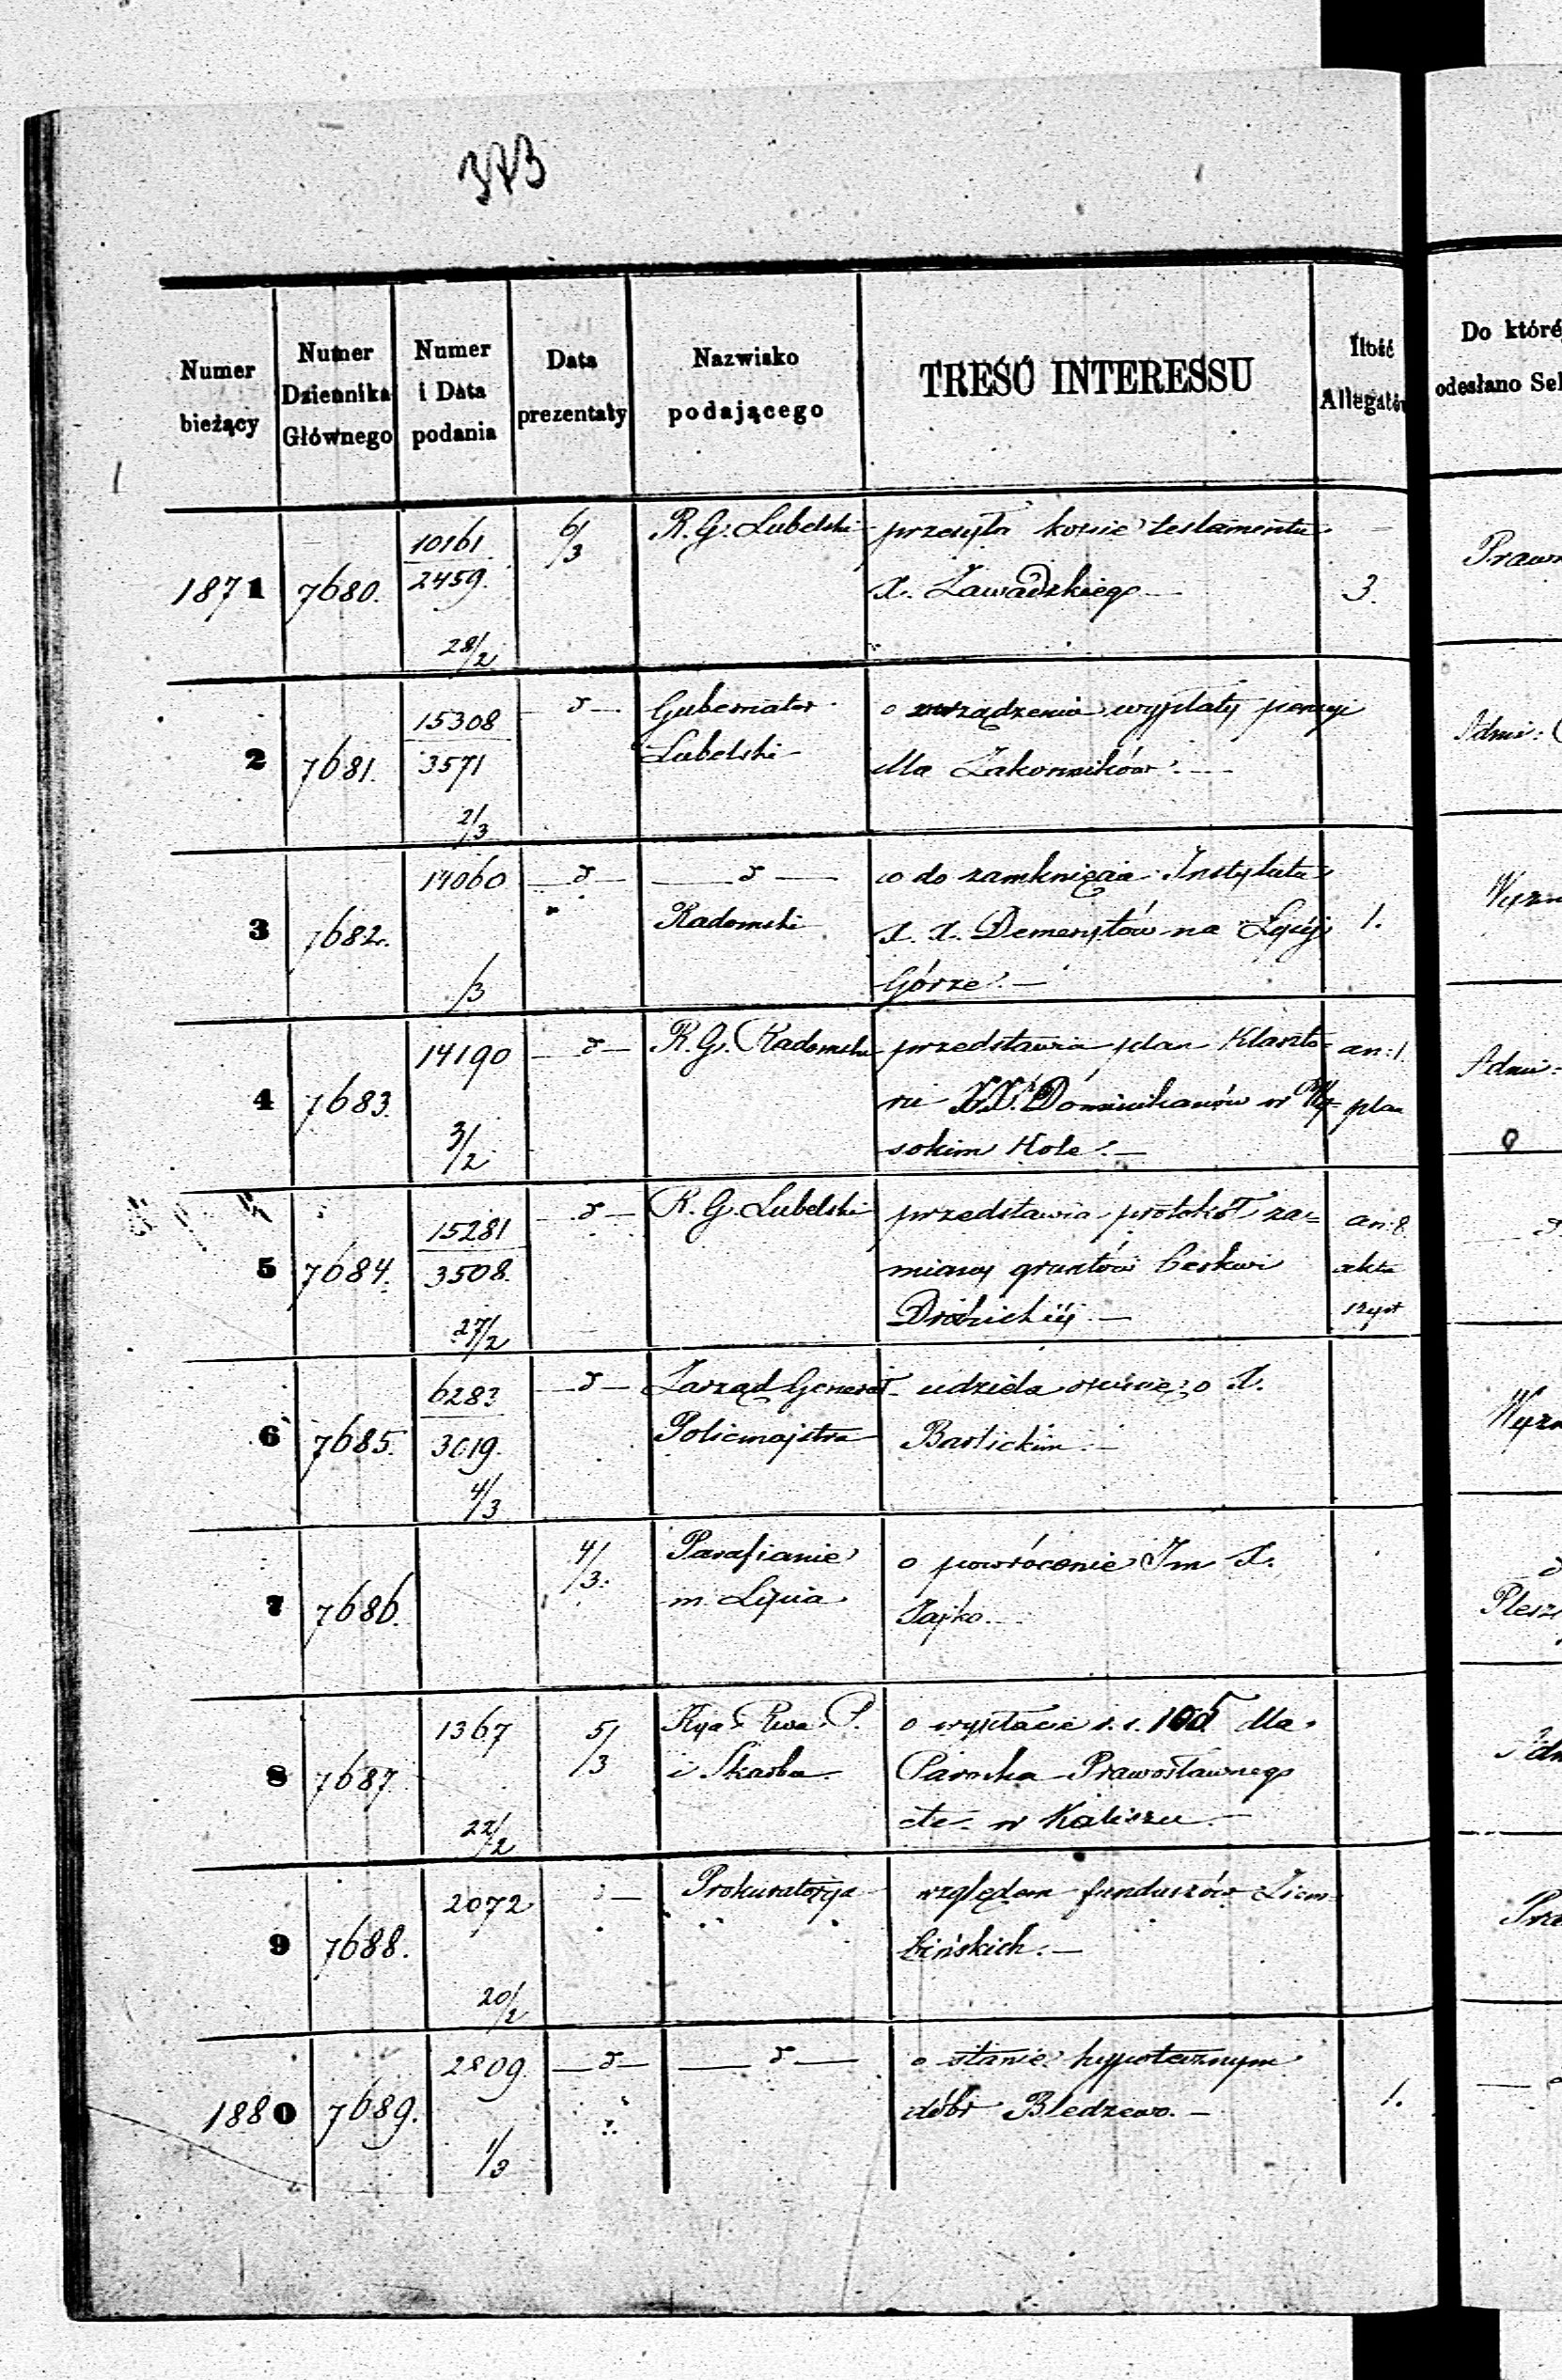 373
Numer bieżący | Numer Dziennika Głównego | Numer i Data podania | Data prezentaty | Nazwisko podającego | TREŚĆ INTERESSU | Ilość Allegatów | Do któré odesłano Se
1871 | 7680. | 10161 / 2459. 28/2 | 6/3 | R. G. Lubelski | przesyła kopie testamentu
X. Zawadzkiego — | 3. | Praw
2 | 7681. | 15308 / 3571 2/3 | d — | Gubernator
Lubelski | o zarządzenie wypłaty pensyi
dla Zakonników. — | Admi:
3 | 7682. | 14060 /3 | — d — | — d —
Radomski | co do zamknięcia Instytutu
X. X. Demerytów na Łyséj
Górze. — | 1. | Wyzn
4 | 7683. | 14190 3/2 | — d — | R. G. Radomski | przedstawia plan Klaszto-
ru XX. Dominikanów w Wy-
sokim Kole. — | an: 1.
plan | Admi:
5 | 7684. | 15281 / 3508. 27/2 | — d — | R. G. Lubelski | przedstawia protokół za=
miany gruntów Cerkwi
— | an: 8
akta
szyt | — d
6 | 7685. | 6283 / 3019. 4/3 | — d — | Zarząd Generał
Policmajstra | udziela opinię o X.
Barlickim. — | Wyzn
7 | 7686. | 4/3. | Parafianie
m. Lipia | o powrócenie Im X.
Zajko. — | d
Plesz
8 | 7687. | 1367 22/2 | 5/3 | Kya Rwa P.
i Skarbu. | o wypłacie r. s. dla
Parocha Prawosławnego
etc. w Kaliszu. — | Adm
9 | 7688. | 2072 20/2 | d — | Prokuratorya | względem funduszów Ziem-
bińskich. — | Pra
1880 | 7689. | 2809 1/3 | — d — | — d — | o stanie hypotecznym
dóbr Bledzewo. — | 1. | —